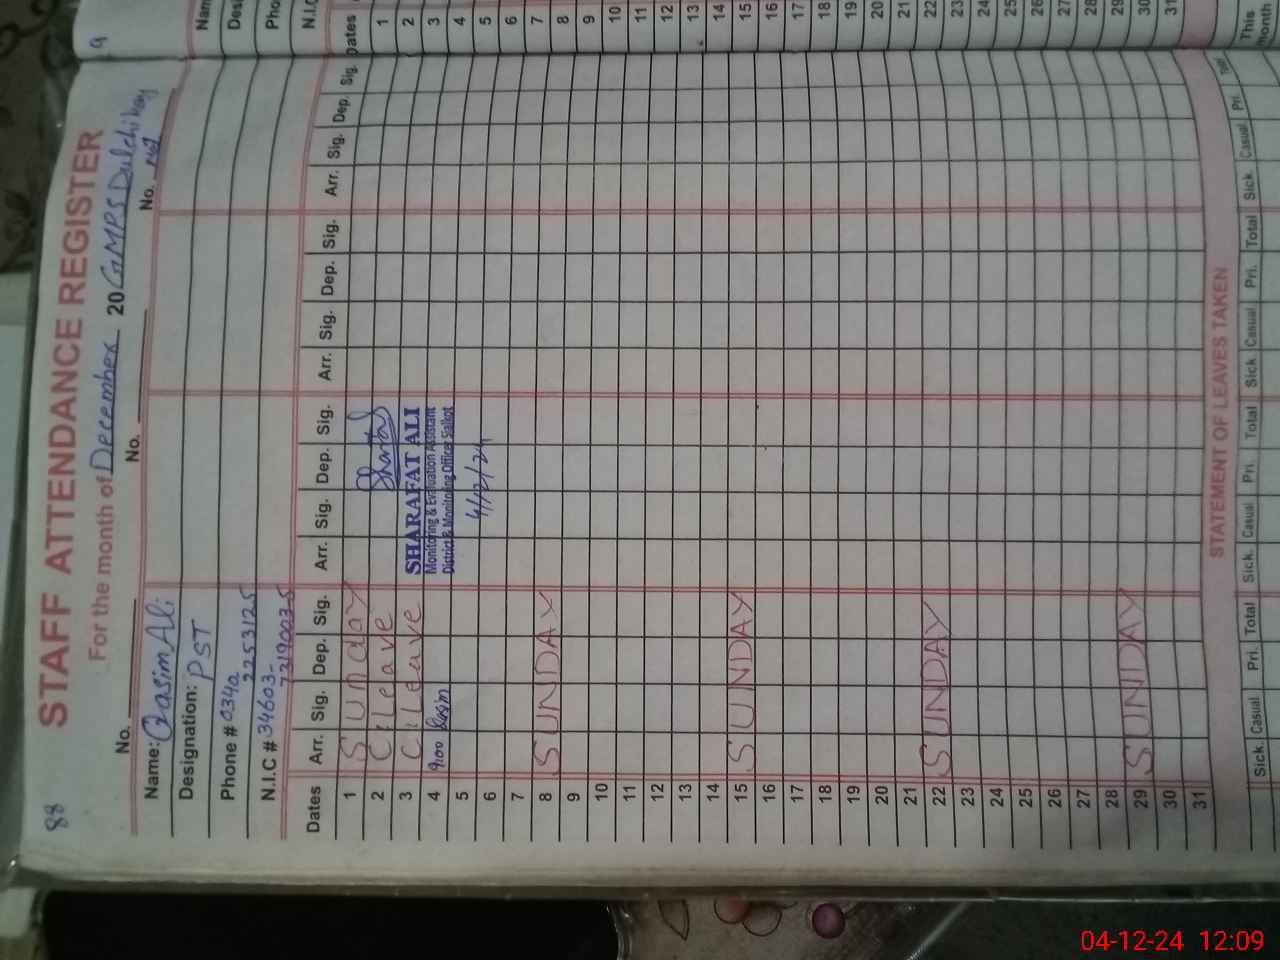 88
STAFF ATTENDANCE REGISTER
For the month of December 20 GMPS Dulchikay
No. No. No.
Name: Qasim Ali
Designation: PST
Phone # 0340
2253125
N.I.C # 34603-
7319003-5
Dates Arr. Sig. Dep. Sig. Arr. Sig. Dep. Sig. Arr. Sig. Dep. Sig. Arr. Sig. Dep. Sig.
1 Sunday
2 C. leave
3 C. leave
4 9:00 Qasim
5
6
7
8 SUNDAY
9
10
11
12
13
14
15 SUNDAY
16
17
18
19
20
21
22 SUNDAY
23
24
25
26
27
28
29 SUNDAY
30
31
SHARAFAT ALI
Monitoring & Evaluation Assistant
District Monitoring Officer Sialkot
4/12/24
STATEMENT OF LEAVES TAKEN
Sick Casual Pri. Total Sick. Casual Pri. Total Sick Casual Pri. Total Sick Casual Pri. Total
9
Nam
Desi
Pho
N.I.C
Dates
1
2
3
4
5
6
7
8
9
10
11
12
13
14
15
16
17
18
19
20
21
22
23
24
25
26
27
28
29
30
31
This
month
04-12-24 12:09